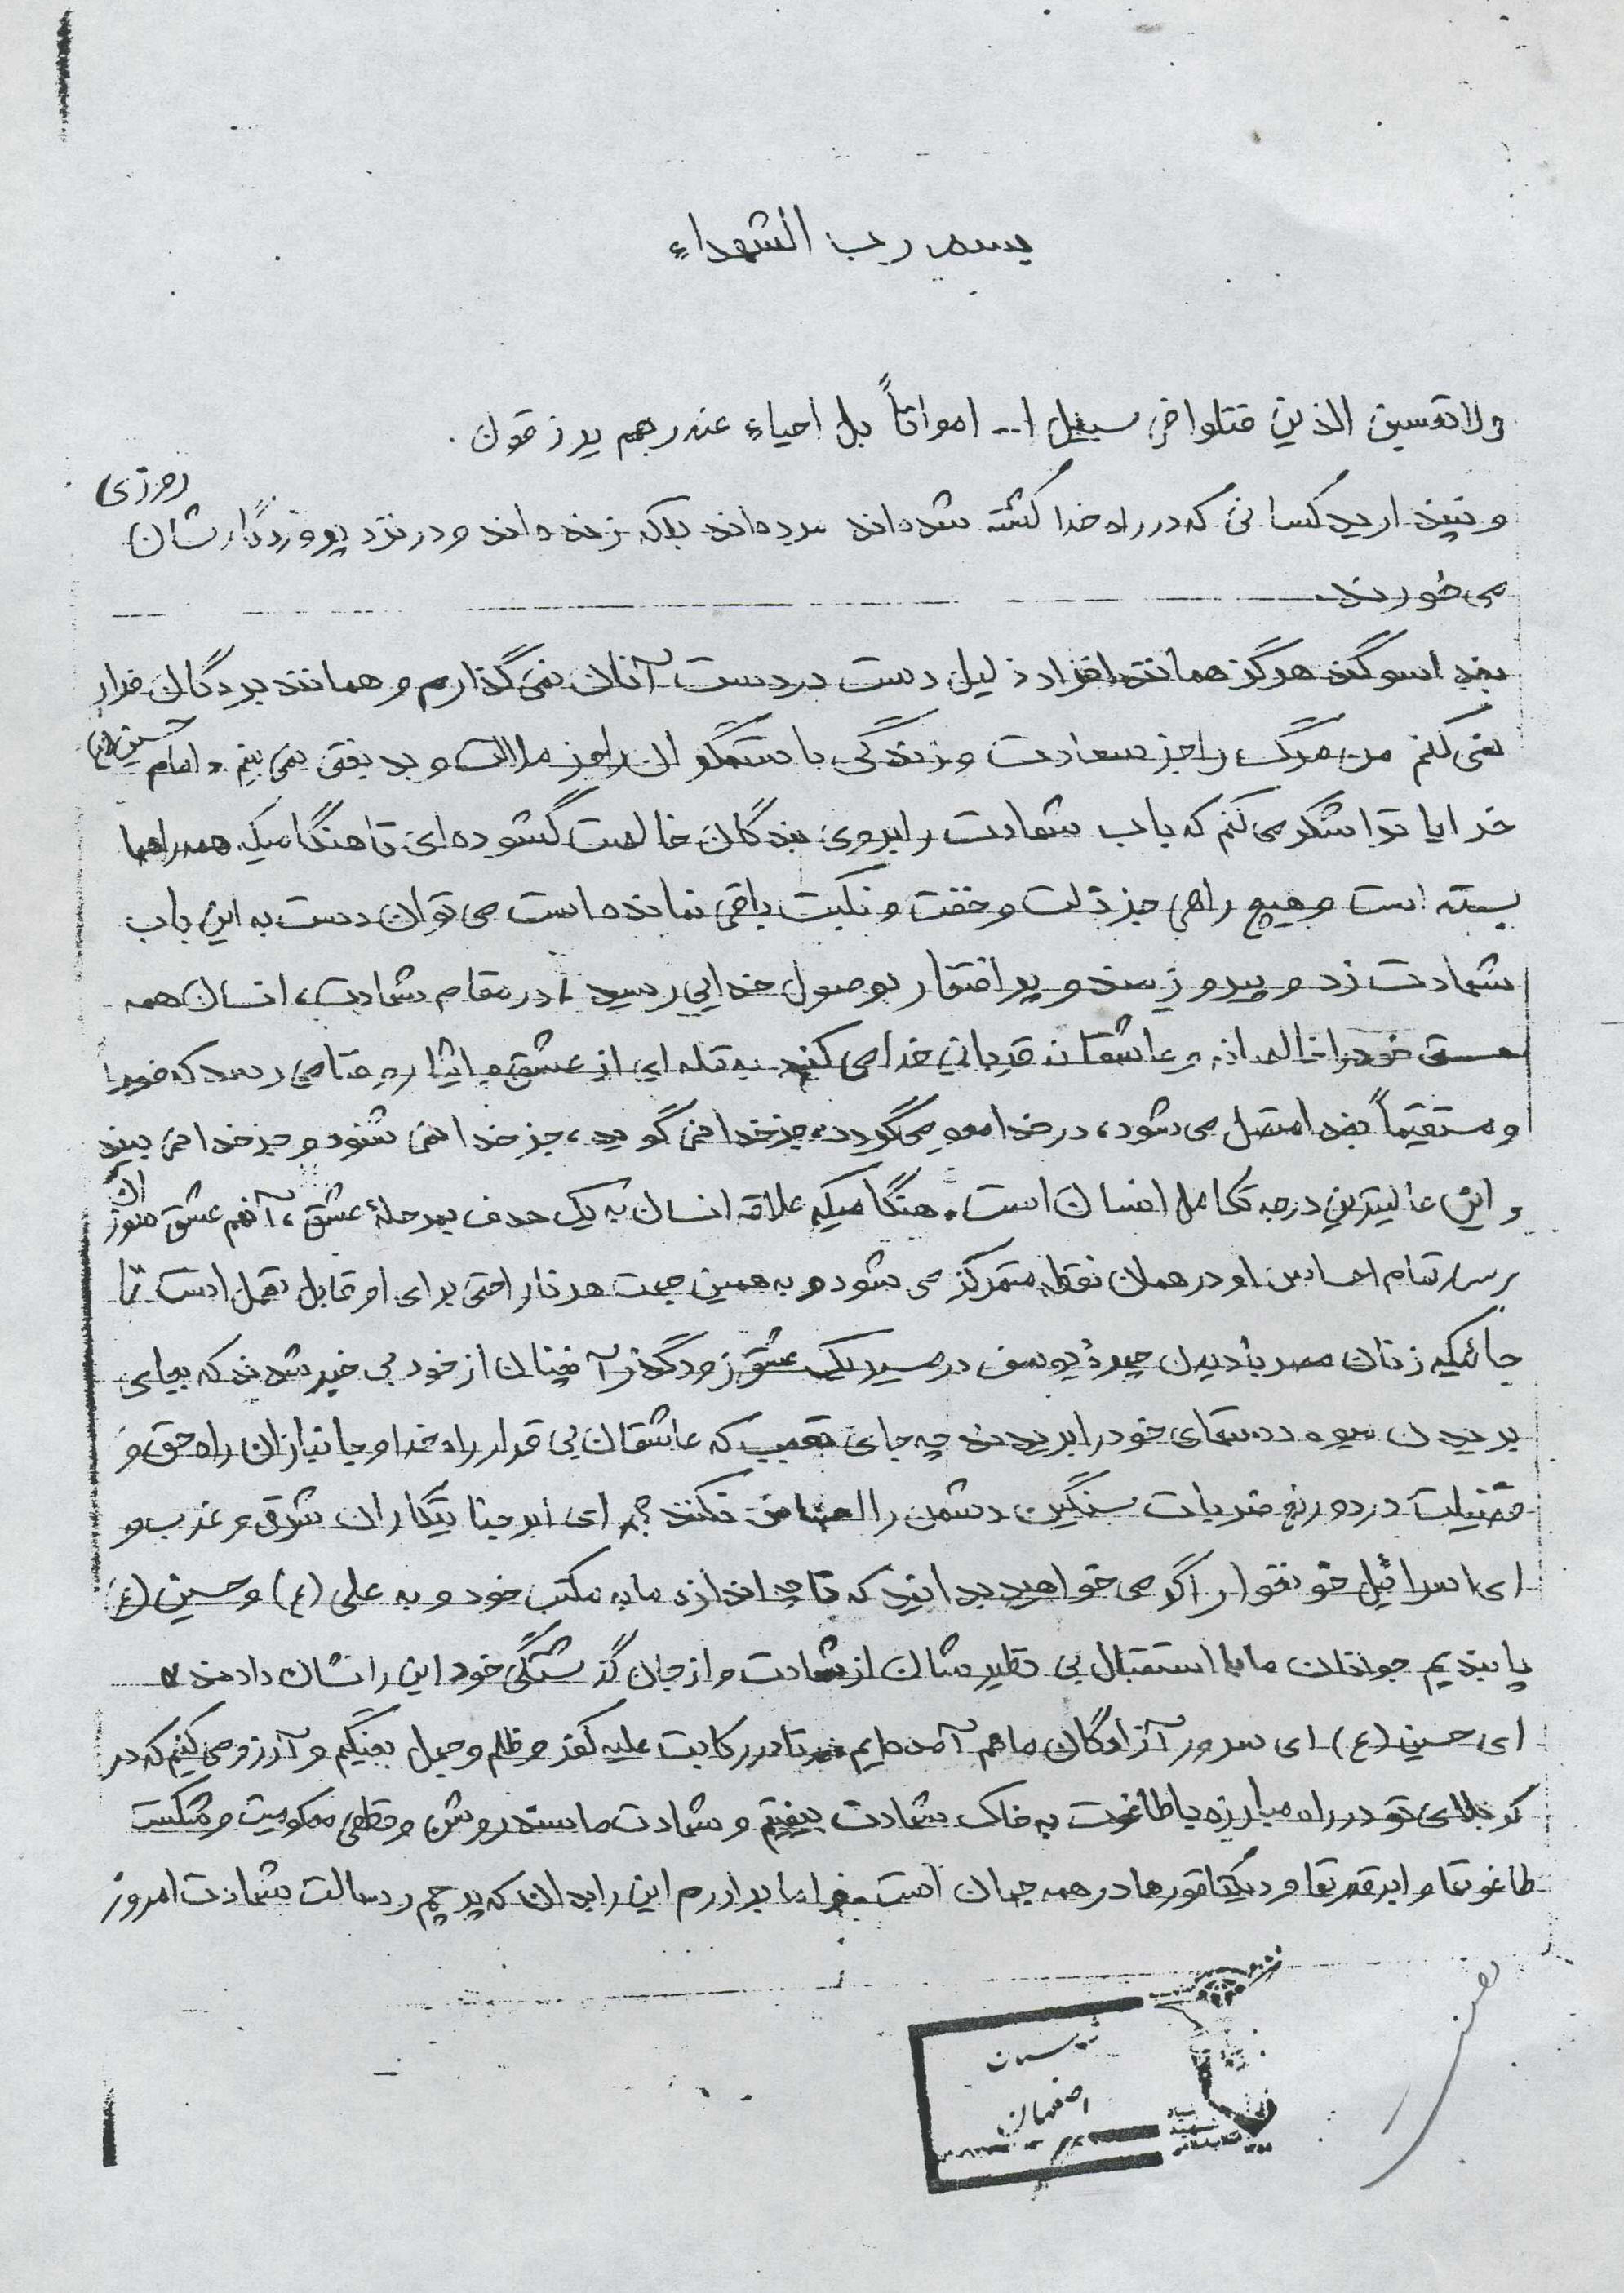 بسم رب الشهداء
ولا تحسبن الذين قتلوا في سبيل ا... امواتاً بل احياء عند ربهم يرزقون .
و نپنداريد كسانی كه در راه خدا كشته شده‌اند مرده‌اند بلكه زنده‌اند و در نزد پروردگارشان روزی
می خورند.
بخدا سوگند هرگز همانند افراد ذليل دست در دست آنان نمی گذارم و همانند بردگان فرار
نمی كنم من مرگ را جز سعادت و زندگی با ستمگران را جز ملالت و بدبختی نمی بينم . امام حسين (ع)
خدايا ترا شكر می كنم كه باب شهادت را بروی بندگان خالصت گشوده‌ای تا هنگاميكه همه راهها
بسته است و هيچ راهی جز ذلت و خفت و نكبت باقی نمانده است می توان دست به اين باب
شهادت زد و پيروزمند و پر افتخار بوصول خدايی رسيد ، در مقام شهادت ، انسان همه
هستی خود را خالصانه و عاشقانه قربانی خدا می كند به قله ای از عشق و ايثار و فنا می رسد كه خود را
و مستقيماً بخدا متصل می شود ، در خدا محو می گردد ، جز خدا نمی گويد ، جز خدا نمی شنود و جز خدا نمی بيند
و اين عاليترين درجه تكامل انسان است . هنگاميكه علاقه انسان به يك هدف بمرحلهٔ عشق ، آنهم عشق سوزان
برسد تمام احساس او در همان نقطه متمركز می شود و به همين جهت هر ناراحتی برای او قابل تحمل است تا
جائيكه زنان مصر با ديدن چهرهٔ يوسف در مسير يك عشق زودگذر آنچنان از خود بی خبر شدند كه بجای
بريدن ميوه دستهای خود را بريدند چه جای تعجب كه عاشقان بی قرار راه خدا و جانبازان راه حق و
فضيلت درد و رنج ضربات سنگين دشمن را احساس نكنند ؟ ای ابرجنايتكاران شرق و غرب و
ای اسرائيل خونخوار اگر می خواهيد بدانيد كه تا چه اندازه ما به مكتب خود و به علی (ع) و حسين (ع)
پابنديم جوانان ما با استقبال بی نظيرشان از شهادت و از جان گذشتگی خود اين را نشان دادند
ای حسين (ع) ای سرور آزادگان ما هم آمده‌ايم تا در ركابت عليه كفر و ظلم و جهل بجنگيم و آرزو می كنيم كه در
كربلای تو در راه مبارزه با طاغوت به خاك شهادت بيفتيم و شهادت ما سند روشن و قطعی محكوميت و شكست
طاغوتها و ابرقدرتها و ديكتاتورها در همه جهان است . اما برادرم اين را بدان كه پرچم رسالت شهادت امروز
اصفهان
بنياد
شهيد
انقلاب اسلامی